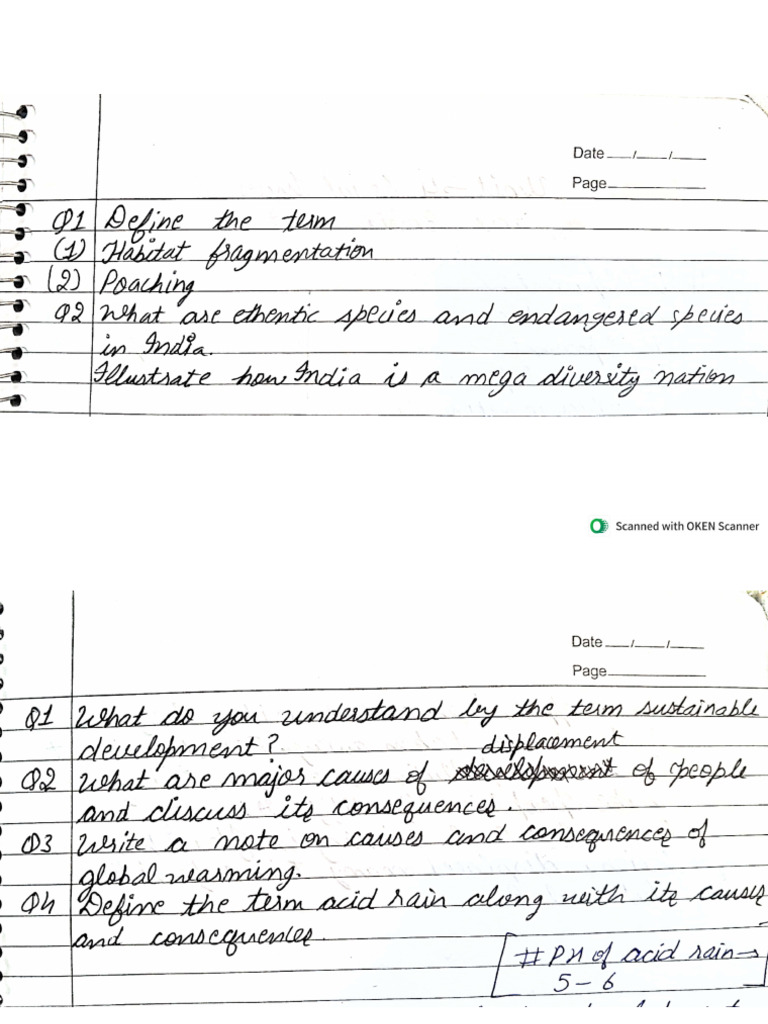 Date __/__/__
Page______
Q1 Define the term
(1) Habitat fragmentation
(2) Poaching
Q2 What are ethentic species and endangered species
in India.
Illustrate how India is a mega diversity nation
Scanned with OKEN Scanner
Date __/__/__
Page______
Q1 What do you understand by the term sustainable
development?
displacement
Q2 What are major causes of of people
and discuss its consequences.
Q3 Write a note on causes and consequences of
global warming.
Q4 Define the term acid rain along with its causes
and consequences.
# PH of acid rain →
5-6